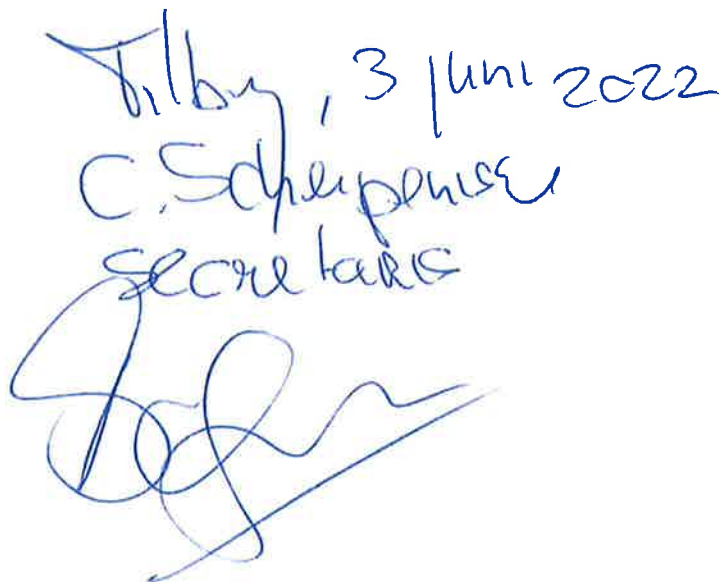 Tilburg, 3 juni 2022
C. Scherpenisse
secretaris